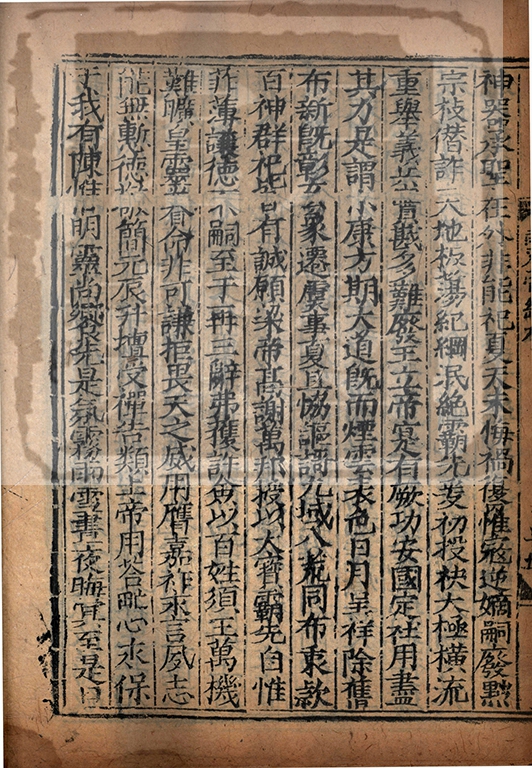 神器承聖在外非能祀夏天未悔禍復惟寇逆嫡嗣廢黜
宗枝僣詐天地板蕩紀綱泯絕霸先爰初投袂大極橫流
重舉義兵實戡多難廢王立帝寔有厥功安國定社用盡
其力是謂小康方期大道既而煙雲表色日月呈祥除舊
布新既彰玄象遷虞事夏且恊謳謌九域八荒同布衷款
百神群祀皆有誠願梁帝高謝萬邦授以大寶霸先自惟
菲薄讓德不嗣至于再三辭弗獲許僉以百姓須主萬機
難曠皇靈眷命非可謙拒畏天之威用膺嘉祚永言夙志
能無慙德敬簡元辰升壇受禪告類上帝用荅甿心永保
于我有陳惟明靈尚饗先是氛霧雨雪晝夜晦冥至是日